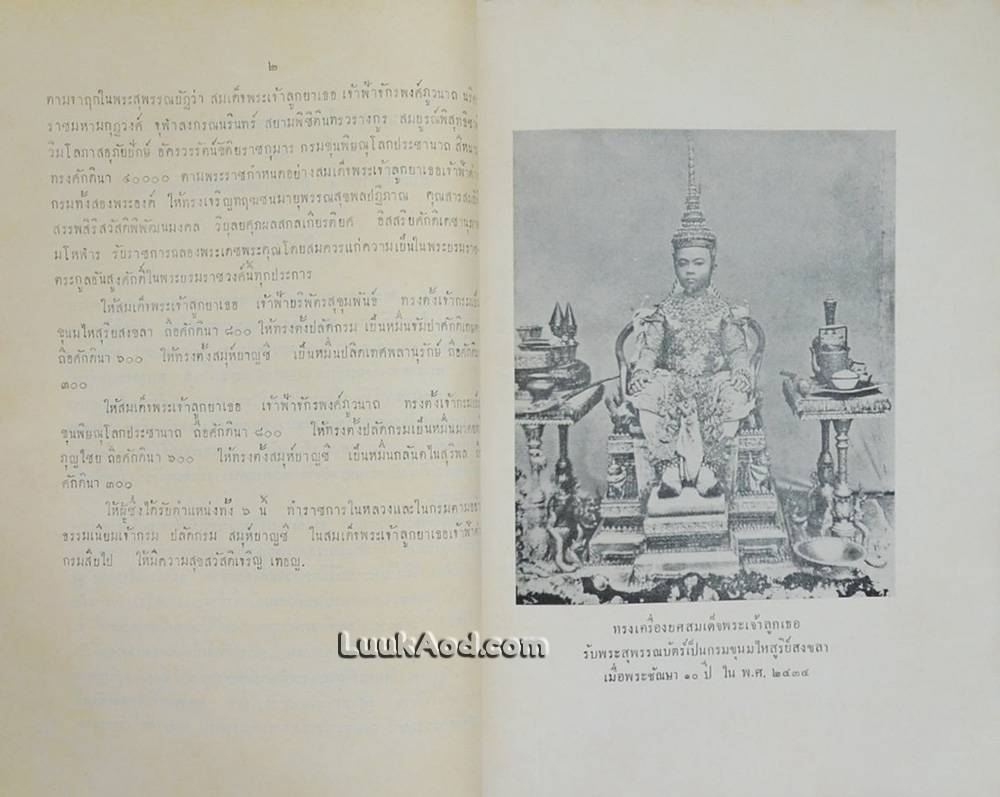 ๒
ตามจาฤกในพระสุพรรณบัฏว่า สมเด็จพระเจ้าลูกยาเธอ เจ้าฟ้าจักรพงศ์ภูวนารถ
ราชมหามกุฏวงศ์ จุฬาลงกรณนรินทร์ สยามพิชิตินทรวรางกูร สมบูรณ์พิสุทธิชาติ
วิมโลภาสอุภัยปักษ์ อัครวรรัตน์ขัติยราชกุมาร กรมขุนพิษณุโลกประชานารถ
ทรงศักดินา ๔๐๐๐๐ ตามพระราชกำหนดอย่างสมเด็จพระเจ้าลูกยาเธอเจ้าฟ้าต่าง
กรมทั้งสองพระองค์ ให้ทรงเจริญทฤฆชนมายุพรรณสุขพลปฏิภาณ คุณสารสมบัติ
สรรพสิริสวัสดิพิพัฒนมงคล วิบุลยศุภผลสกลเกียรติยศ อิสสริยศักดิเดชานุภาพ
มโหฬาร รับราชการฉลองพระเดชพระคุณโดยสมควรแก่ความเป็นในพระบรมราช
ตระกูลอันสูงศักดิ์ในพระบรมราชวงศ์นี้ทุกประการ
ให้สมเด็จพระเจ้าลูกยาเธอ เจ้าฟ้าบริพัตรสุขุมพันธุ์ ทรงตั้งเจ้ากรมเป็น
ขุนมไหสุริยสงขลา ถือศักดินา ๘๐๐ ให้ทรงตั้งปลัดกรม เป็นหมื่น
ถือศักดินา ๖๐๐ ให้ทรงตั้งสมุห์บาญชี เป็นหมื่นปลิดเทศพลานุรักษ์ ถือศักดินา
๓๐๐
ให้สมเด็จพระเจ้าลูกยาเธอ เจ้าฟ้าจักรพงศ์ภูวนารถ ทรงตั้งเจ้ากรมเป็น
ขุนพิษณุโลกประชานารถ ถือศักดินา ๘๐๐ ให้ทรงตั้งปลัดกรมเป็นหมื่น
ถือศักดินา ๖๐๐ ให้ทรงตั้งสมุห์บาญชี เป็นหมื่น
ศักดินา ๓๐๐
ให้ผู้ซึ่งได้รับตำแหน่งทั้ง ๖ นี้ ทำราชการในหลวงและในกรมตาม
ธรรมเนียมเจ้ากรม ปลัดกรม สมุห์บาญชี ในสมเด็จพระเจ้าลูกยาเธอเจ้าฟ้าต่าง
กรมสืบไป ให้มีความสุขสวัสดิเจริญ เทอญ.
ทรงเครื่องยศสมเด็จพระเจ้าลูกเธอ
รับพระสุพรรณบัตร์เป็นกรมขุนมไหสูริย์สงขลา
เมื่อพระชัณษา ๑๐ ปี ใน พ.ศ. ๒๔๓๔
LuukAod.com